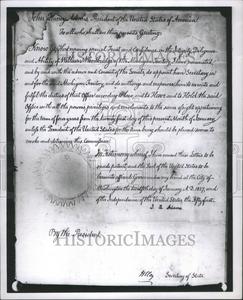 John Quincy Adams, President of the United States of America!
To all who shall see these presents, Greeting:
Know ye, that reposing special Trust and Confidence in the Integrity, Diligence
and Ability of William Woodbridge of the Michigan Territory, I have nominated,
and by and with the advice and Consent of the Senate, do appoint him Secretary in
and for the said Michigan Territory and do authorize and empower him to execute and
fulfil the duties of that office according to law; and to Have and to Hold the said
Office with all the powers, privileges and emoluments to the same of right appertaining
for the term of four years from the twenty first day of this present Month of January
unless the President of the United States for the time being should be pleased sooner to
revoke and determine this Commission.
In Testimony whereof, I have caused these Letters to be
made patent and the Seal of the United States to be
hereunto affixed. Given under my hand at the City of
Washington the twelfth day of January A.D. 1827, and
of the Independence of the United States, the fifty first.
J. Q. Adams
By the President,
H Clay Secretary of State.